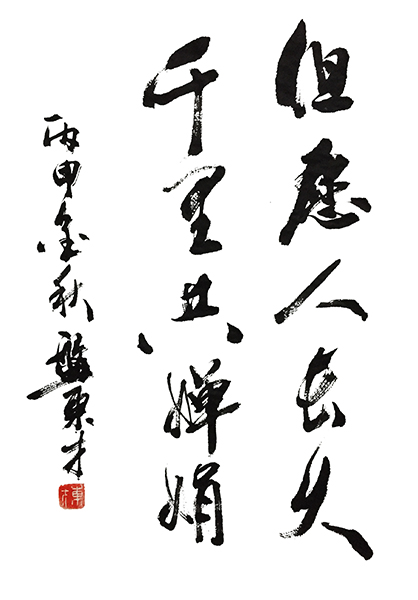 但愿人长久
千里共婵娟
丙申金秋 盤东才